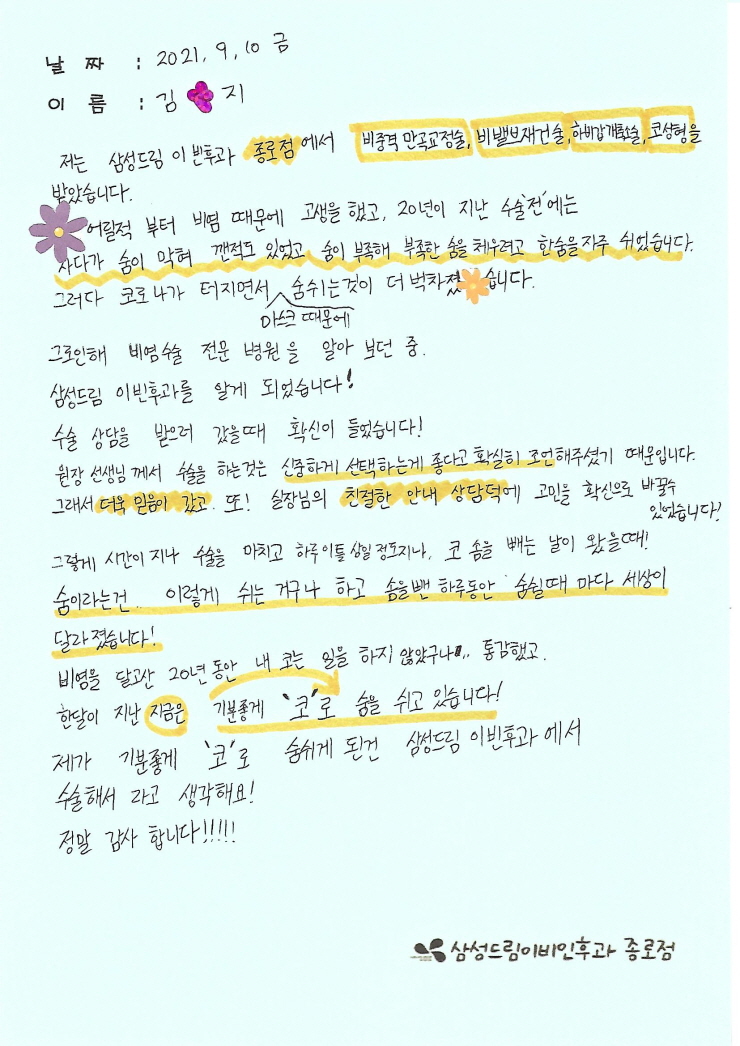 날 짜 : 2021. 9. 10 금
이 름 : 김 지
저는 삼성드림 이빈후과 종로점에서 비중격 만곡교정술, 비밸브재건술, 하비갑개축소술, 코성형을
받았습니다.
어릴적 부터 비염 때문에 고생을 했고, 20년이 지난 수술'전'에는
자다가 숨이 막혀 깬적도 있었고 숨이 부족해 부족한 숨을 체우려고 한숨을 자주 쉬었습니다.
그러다 코로나가 터지면서 숨쉬는것이 더 벅차졌습니다.
마스크 때문에
그로인해 비염수술 전문 병원을 알아 보던 중.
삼성드림 이빈후과를 알게 되었습니다!
수술 상담을 받으러 갔을때 확신이 들었습니다!
원장 선생님 께서 수술을 하는것은 신중하게 선택하는게 좋다고 확실히 조언해주셨기 때문입니다.
그래서 더욱 믿음이 갔고. 또! 실장님의 친절한 안내 상담덕에 고민을 확신으로 바꿀수
있었습니다!
그렇게 시간이 지나 수술을 마치고 하루이틀 삼일 정도지나, 코 솜을 빼는 날이 왔을때!
숨이라는건.. 이렇게 쉬는 거구나 하고 솜을뺀 하루동안 숨쉴때 마다 세상이
달라졌습니다!
비염을 달고산 20년 동안 내 코는 일을 하지 않았구나... 통감했고.
한달이 지난 지금은 기분좋게 '코'로 숨을 쉬고 있습니다!
제가 기분좋게 '코'로 숨쉬게 된건 삼성드림 이빈후과 에서
수술해서 라고 생각해요!
정말 감사 합니다!!!!!
삼성드림이비인후과 종로점